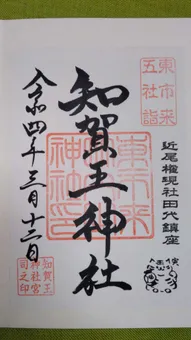 東市来
五社詣
近尾権現社田代鎮座
知賀王神社
東市来
神社印
令和四年三月十二日
知賀王
神社宮
司之印